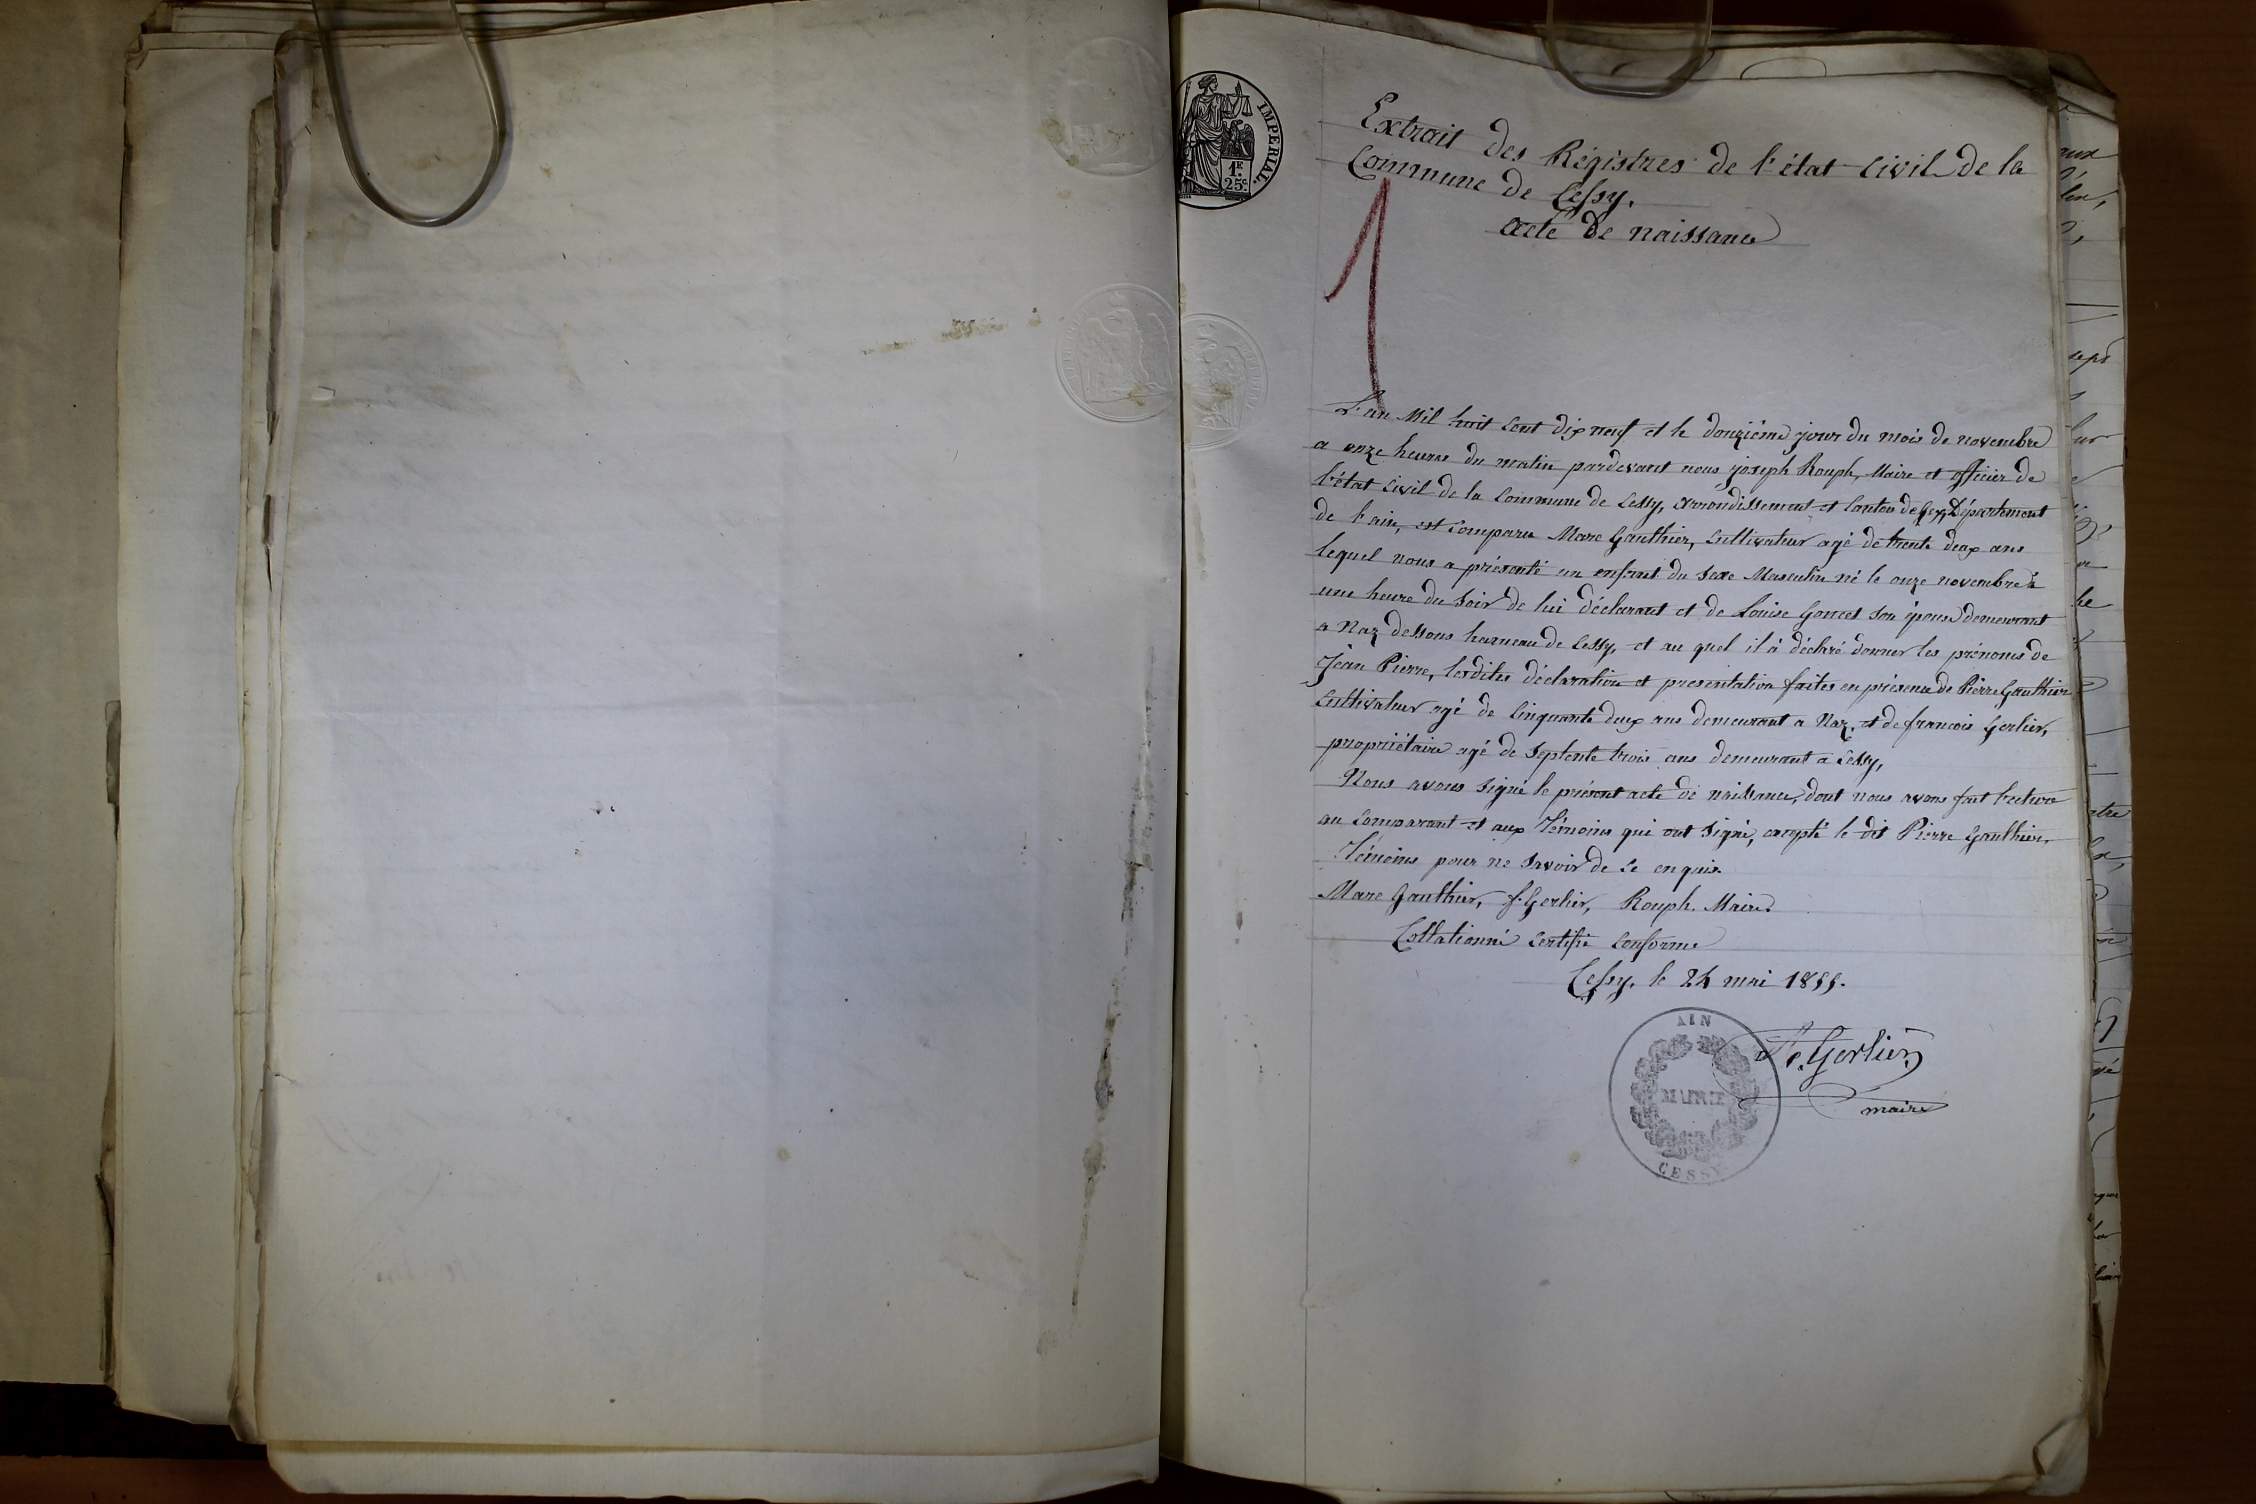 IMPERIAL.
1F.
25c
Extrait des Régistres de l'état-civil de la
Commune de Cessy.
acte de naissance
1
L'an Mil huit cent dix neuf et le douzième jour du mois de novembre
a onze heures du matin pardevant nous joseph Rouph, Maire et officier de
l'état civil de la Commune de Cessy, arrondissement et Canton de Gex, Département
de l'ain, est comparu Marc Gauthier, Cultivateur agé de trente deux ans
lequel nous a présenté un enfant du Sexe Masculin né le onze novembre à
une heure du Soir de lui déclarant et de Louise Goncet son épouse demeurant
a Naz dessous hameau de Cessy, et au quel il à déclaré donner les prénoms de
Jean Pierre, lesdites déclaration et presentation faites en présence de Pierre Gauthier
Cultivateur agé de Cinquante deux ans demeurant a Naz, et de francois Gerlier,
propriétaire agé de Septente trois ans demeurant a Cessy,
Nous avons signé le présent acte de naissance, dont nous avons fait lecture
au Comparant et aux Témoins qui ont signé, excepté le dit Pierre Gauthier,
Témoins pour ne Savoir de ce enquis.
Marc Gauthier, f. Gerlier, Rouph. Maire.
Collationné certifié conforme
Cessy, le 24 mai 1855.
Gerlier
maire
AIN
MAIRIE
CESSY